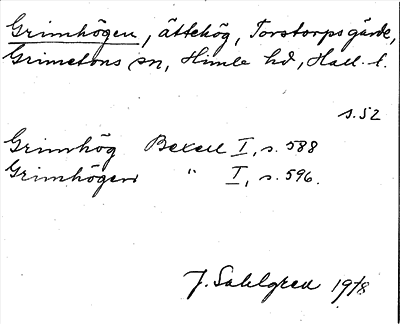 Grimhögen, ättehög, Torstorps gärde,
Grimetons sn, Himle hd, Hall. l.
s. 52
Grimhög Bexell I, s. 588
Grimhögen " I, s. 596.
J. Sahlgren 1918